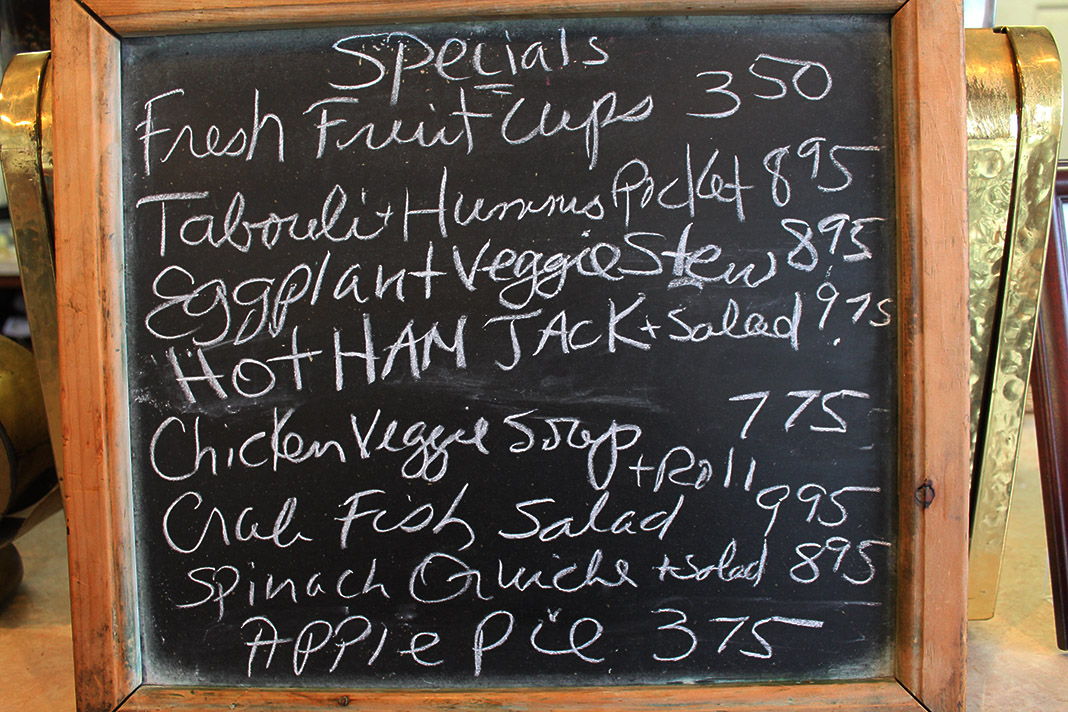 Specials
Fresh Fruit Cups 3 50
Tabouli + Hummus Pocket 8 95
Eggplant Veggie Stew 8 95
HOT HAM JACK + Salad 9.75
Chicken Veggie Soup 7 75
+ Roll
Crab Fish Salad 9 95
Spinach Quiche + Salad 8 95
Apple Pie 3 75